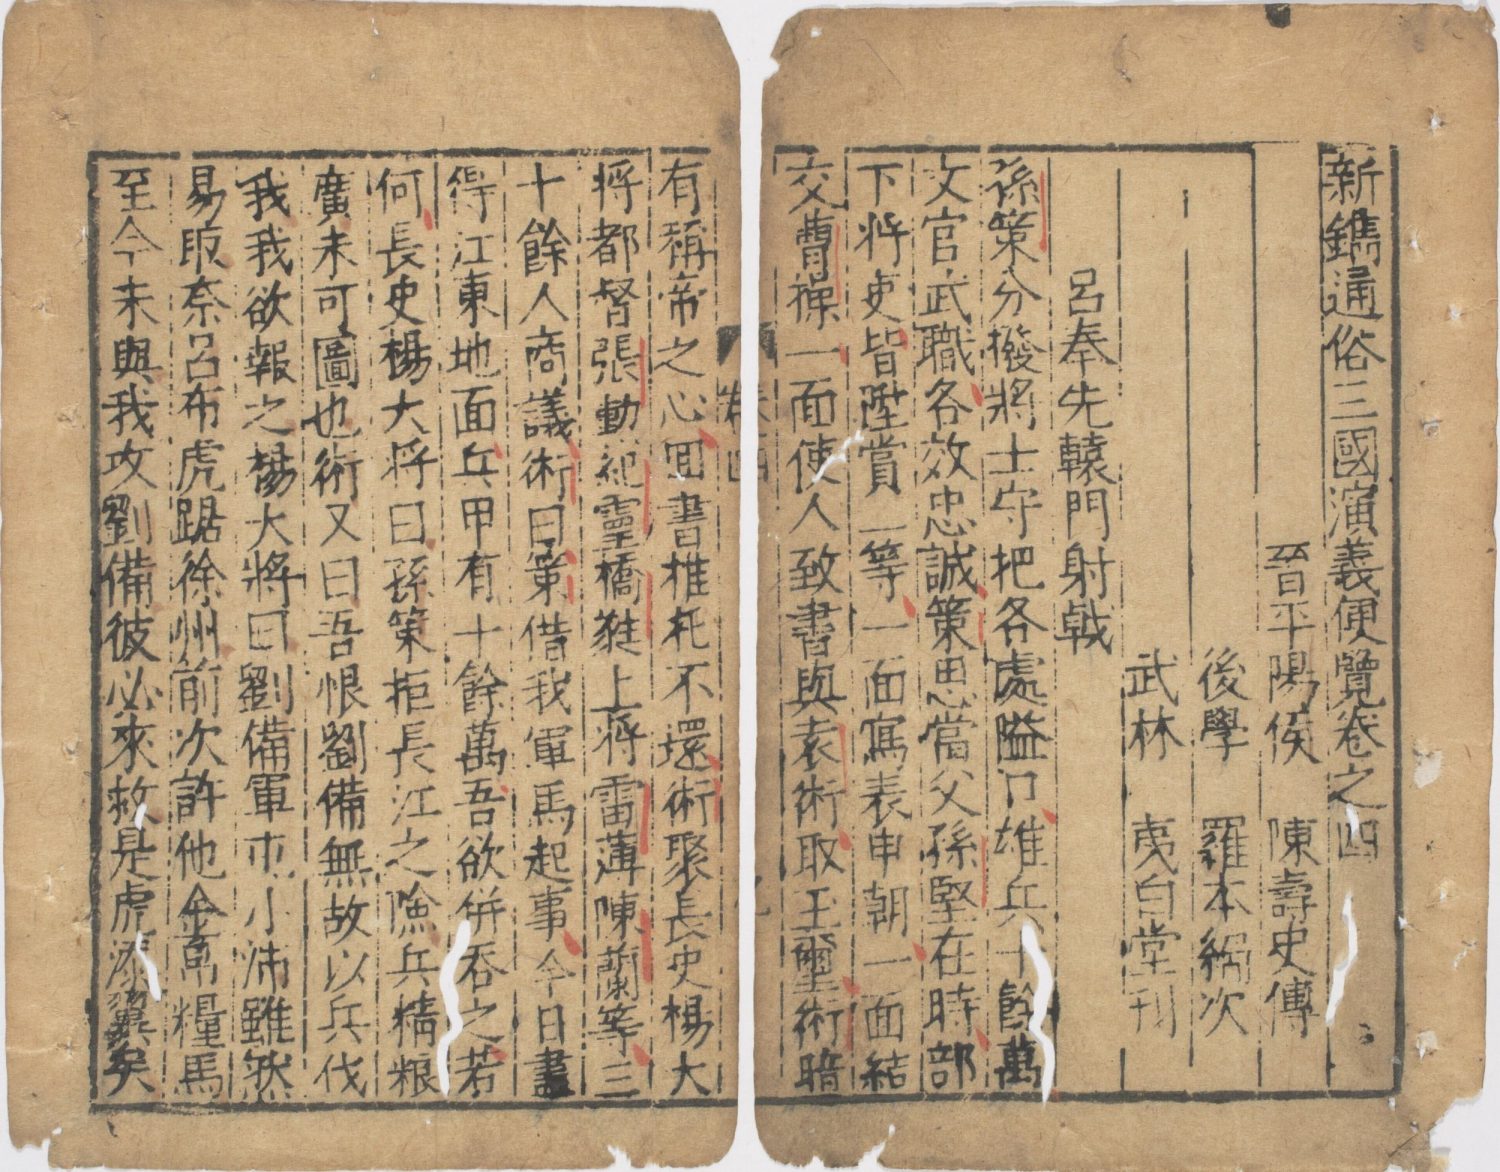 新鐫通俗三國演義便覽卷之四
晉平陽侯 陳壽史傳
後學 羅本編次
武林 夷白堂刊
呂奉先轅門射戟
孫策分撥將士守把各處隘口雄兵十餘萬
文官武職各效忠誠策思當父孫堅在時部
下將吏皆陞賞一等一面寫表申朝一面結
交曹操一面使人致書與袁術取玉璽術暗
卷四
有稱帝之心囬書推托不還術聚長史楊大
将都督張動紀靈橋甤上將雷薄陳蘭等三
十餘人商議術曰策借我軍馬起事今日盡
得江東地面兵甲有十餘萬吾欲併吞之若
何長史楊大将曰孫策拒長江之險兵精粮
廣未可圖也術又曰吾恨劉備無故以兵伐
我我欲報之楊大將曰劉備軍屯小沛雖然
易取奈呂布虎踞徐州前次許他金帛糧馬
至今未與我攻劉備彼必來救是虎添翼矣